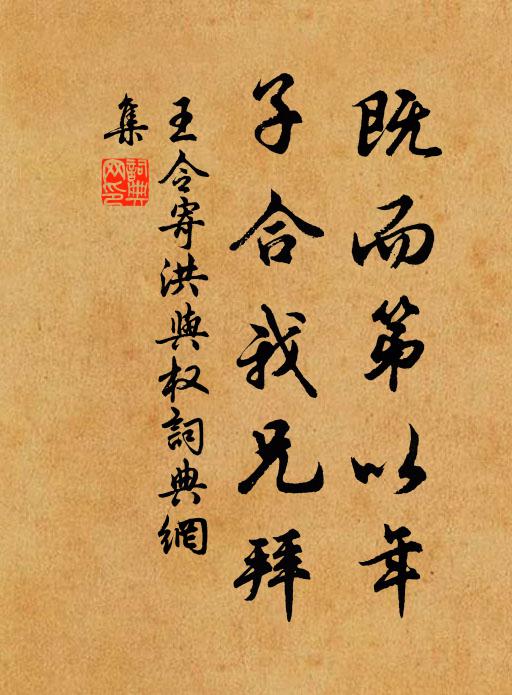 既而第以年
子合我兄拜
王令寄洪與权詞典網
集
詞典網印